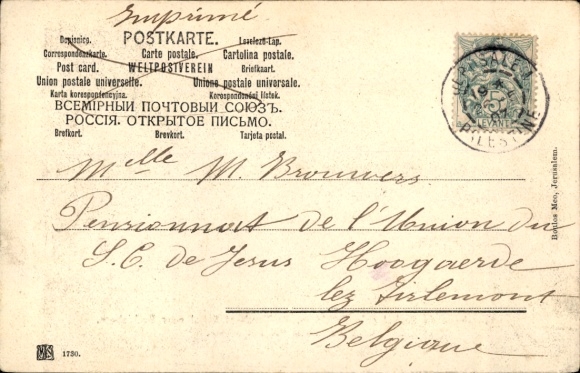 Imprimé.
POSTKARTE.
Dopisnice. Levelező-Lap.
Correspondenzkarte. Carte postale. Cartolina postale.
Post card. WELTPOSTVEREIN Briefkaart.
Union postale universelle. Unione postale universale.
Karta korespondencyjna. Korespondenční lístek.
ВСЕМІРНЫЙ ПОЧТОВЫЙ СОЮЗЪ.
РОССІЯ. ОТКРЫТОЕ ПИСЬМО.
Brefkort. Brevkort. Tarjeta postal.
JERUSALEM
PALESTINE
5
LEVANT
Melle M. Brouwers
Pensionnat de l'Union du
S.C. de Jesus Hoogaerde
lez Tirlemont
Belgique
Meo, Jerusalem.
1730.